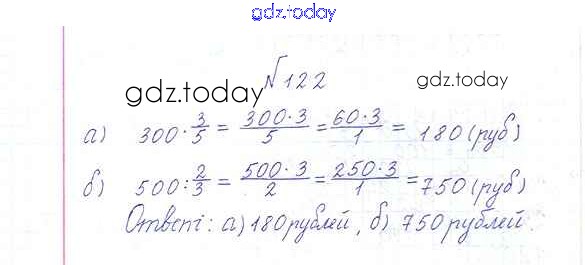 gdz.today
№122
gdz.today
gdz.today
а) 300 · 3/5 = 300·3/5 = 60·3/1 = 180 (руб)
б) 500 : 2/3 = 500·3/2 = 250·3/1 = 750 (руб)
Ответ: а) 180 рублей, б) 750 рублей.